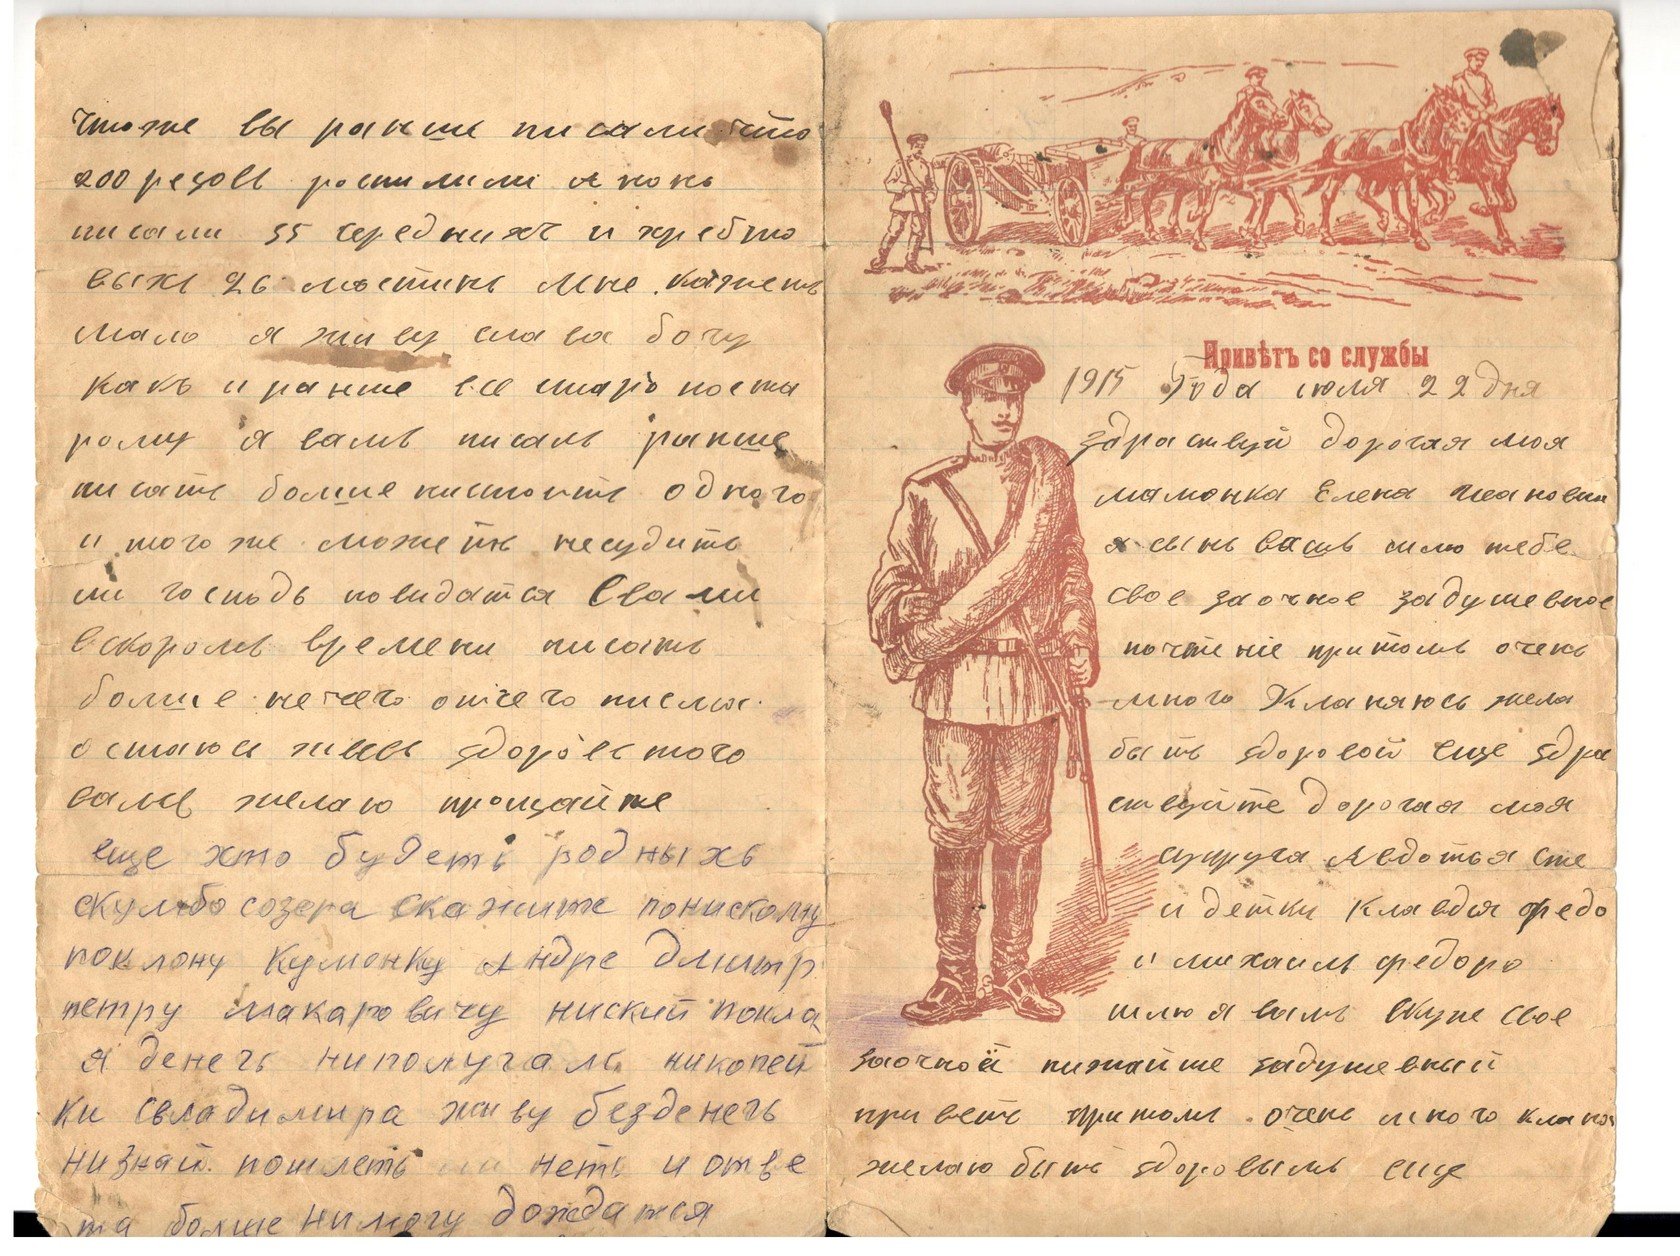 что же вы раньше писали что
200 резовъ ростилили а нонь
писали 55 середнихъ и хребто
выхъ 26 мне кажеть
мало я живу слава богу
какъ и раньше все старо поста
рому я вамъ писалъ раньше
писать больше нистоить одного
и того же можеть несудить
ли господь повидатся Свами
вскоромъ времени писать
больше нечего отчего писма
остаюсь живъ здоровъ того
вамъ желаю прощайте
еще хто будеть родныхъ
скумбосозера скажите понискому
поклону куманьку Андре Дмитр
петру макаровичу ниский покло
я денегъ ниполучалъ никопей
ки свладимира живу безденегъ
низнай пошлеть ли неть и отве
та больше нимогу дождатся
Привѣтъ со службы
1915 Года июля 22 дня
здраствуй дорогая моя
мамонка Елена Ивановна
я сынъ вашъ шлю тебе
свое заочное задушевное
почтение притомъ очень
много Кланяюсь жела
быть здоровой еще здра
ствуйте дорогая моя
супруга Авдотья Сте
и детки клавдия федо
и михаилъ федоро
шлю я вамъ вкупе свое
заочной нижайше задушевный
приветъ притомъ очень много кланя
желаю быть здоровымъ еще